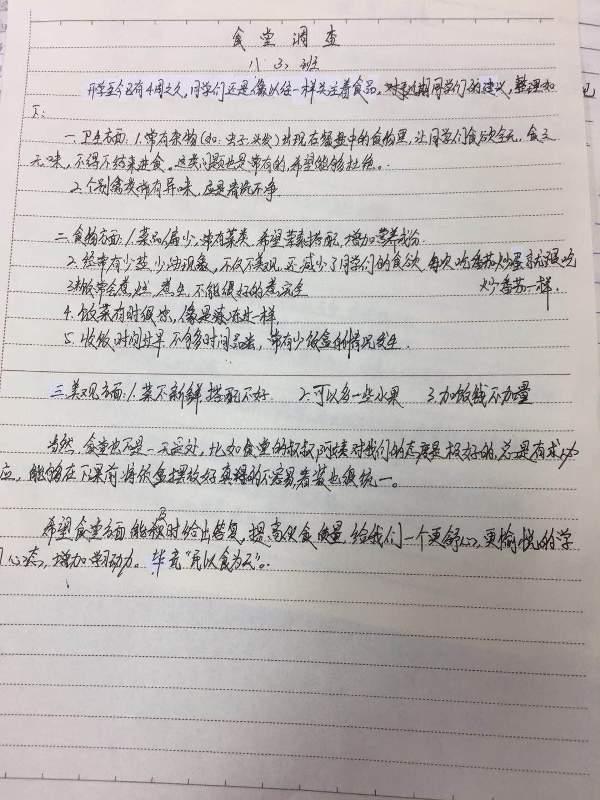 食堂调查
八（3）班
开学至今已有4周之久,同学们还是像以往一样关注着食品。对于近期同学们的建议,整理如
下:
一.卫生方面:1.常有杂物(如:虫子.头发)出现在餐盘中的食物里,让同学们食欲全无,食之
无味,不得不结束进食。这类问题也是常有的,希望能够杜绝。
2.个别餐类常有异味,应是清洗不净
二.食物方面:1.菜品偏少,常有荤类,希望荤素搭配,增加营养成份.
2.经常有少盐少油现象,不仅不美观,还减少了同学们的食欲,每次吃番茄炒蛋就跟吃
炒番茄一样.
3.米饭常会煮烂,煮生,不能很好的煮完全
4.饭菜有时很冷,像是冻在过一样,
5.收饭时间过早,不多时间品尝,常有少饭盒的情况发生.
三.美观方面:1.菜不新鲜,搭配不好. 2.可以多一些水果 3.加饭钱不加量
当然,食堂也不是一无是处,比如食堂的叔叔阿姨对我们的态度是极好的,总是有求必
应,能够在下课前将饭盒摆放好真得的不容易着装也很统一。
希望食堂方面能够及时给出答复,提高伙食质量,给我们一个更舒心,更愉悦的学
习心态,增加学习动力。毕竟"民以食为天"。